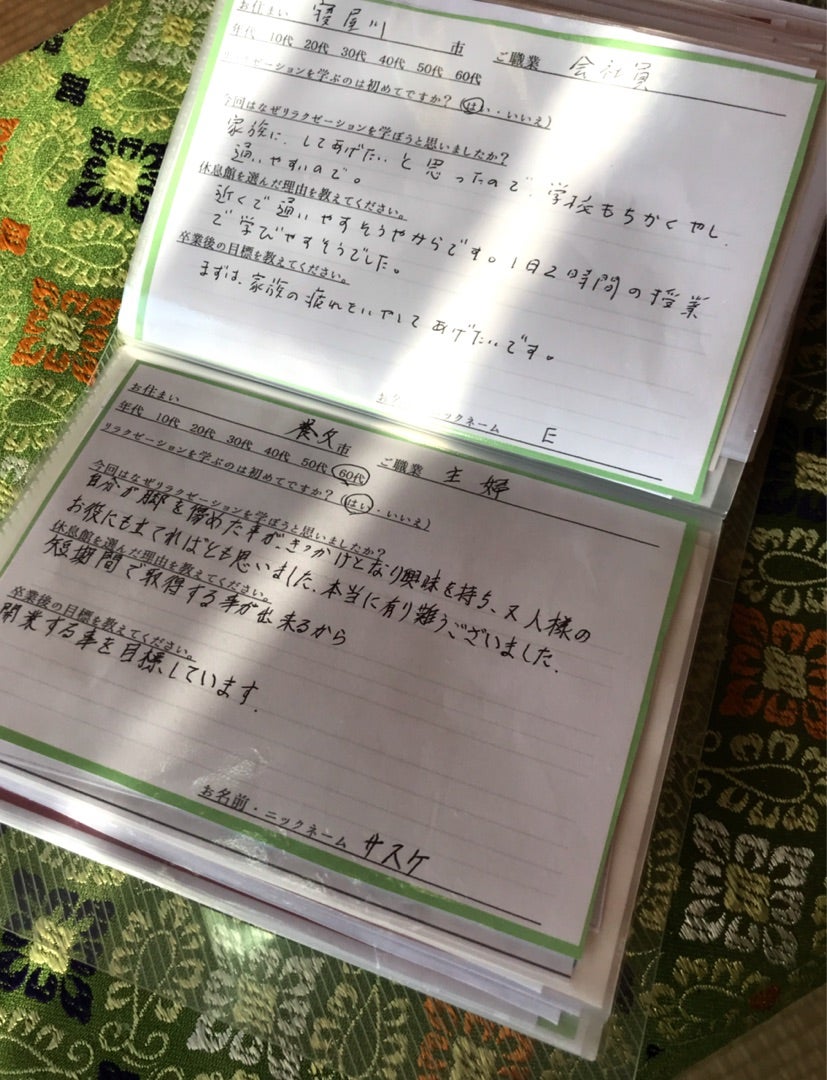 お住まい 寝屋川 市 ご職業 会社員
年代 10代 20代 30代 40代 50代 60代
リラクゼーションを学ぶのは初めてですか？（はい・いいえ）
今回はなぜリラクゼーションを学ぼうと思いましたか？
家族に、してあげたいと思ったので、学校もちかくやし、
通いやすいので。
休息館を選んだ理由を教えてください。
近くで通いやすそうやからです。1日2時間の授業
で学びやすそうでした。
卒業後の目標を教えてください。
まずは、家族の疲れをいやしてあげたいです。
お名前・ニックネーム E
お住まい 養父市 ご職業 主婦
年代 10代 20代 30代 40代 50代 60代
リラクゼーションを学ぶのは初めてですか？（はい・いいえ）
今回はなぜリラクゼーションを学ぼうと思いましたか？
自分が脚を傷めた事が、きっかけとなり興味を持ち、又人様の
お役にも立てればとも思いました。本当に有り難うございました。
休息館を選んだ理由を教えてください。
短期間で取得する事が出来るから
卒業後の目標を教えてください。
開業する事を目標しています。
お名前・ニックネーム サスケ